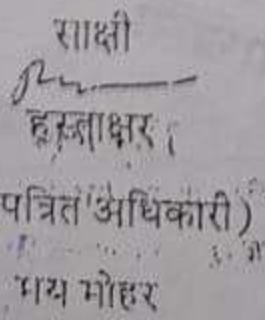 साक्षी
हस्ताक्षर
पत्रित अधिकारी)
मय मोहर